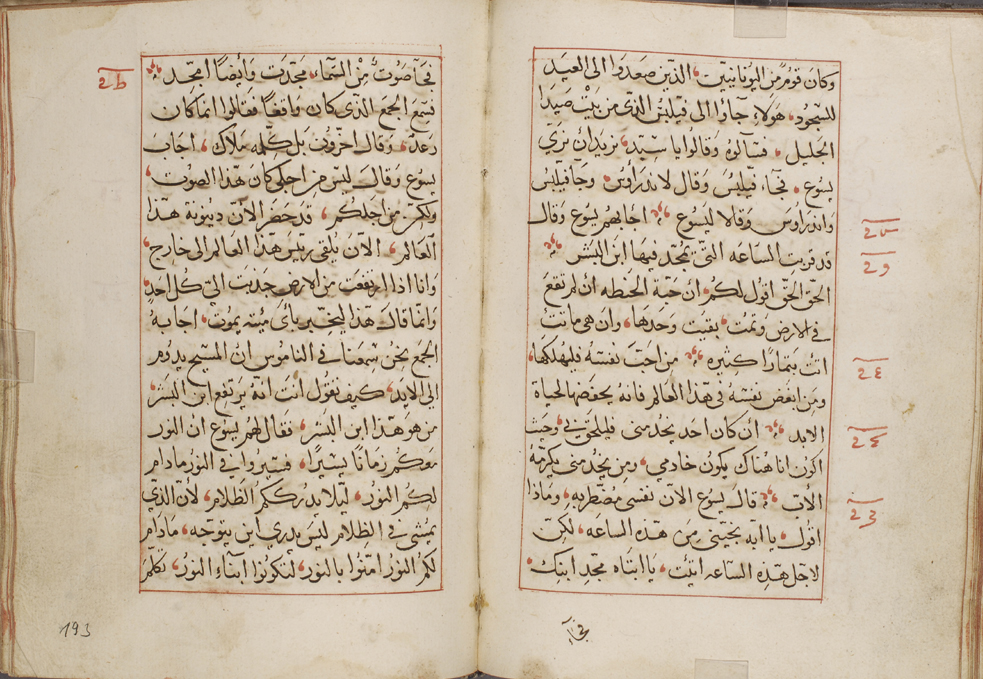 وكان قوم من اليونانيين الذين صعدوا الى العيد
للسجود هولاء جآوا الى فيلبس الذي من بيت صيدا
الجليل فسالوه وقالوا يا سيد نريد ان نري
يسوع فجاء فيلبس وقال لاندراوس وجا فيلبس
واندراوس وقالا ليسوع اجابهم يسوع وقال
قد قربت الساعه التي يمجد فيها ابن البشر
الحق الحق اقول لكم ان حبة الحنطه ان لم تقع
في الارض وتمت بقيت وحدها وان هي ماتت
اتت بثمارا كثيره من احب نفسه فليهلكها
ومن ابغض نفسه في هذا العالم فانه يحفضها لحياة
الابد ان كان احد يخدمني فليلحق بي وحيث
اكون انا هناك يكون خادمي ومن يخدمني يكرمه
الأب قال يسوع الان نفسي مضطربه وماذا
اقول يا ابه نجيني من هذه الساعه لكن
لاجل هذه الساعه اتيت يا ابتاه مجد ابنك
فجآ
فجآ صوت من السماء مجدت وايضا امجد
فسمع الجمع الذي كان واقفا فقالوا انما كان
رعد وقال اخرون بل كلمه ملاك اجاب
يسوع وقال ليس من اجلي كان هذا الصوت
ولكن من اجلكم قد حضر الان دينونة هذا
العالم الان يلقى رييس هذا العالم الى خارج
وانا اذا ارتفعت من الارض جذبت الي كل احد
وانما قال هذا ليخبر باي ميته يموت اجابه
الجمع نحن سمعنا في الناموس ان المسيح يدوم
الى الابد كيف تقول انت انه يرتفع ابن البشر
من هو هذا ابن البشر فقال لهم يسوع ان النور
معكم زمانا يسيرا فسيروا في النور مادام
لكم النور ليلا يدرككم الظلام لأن الذي
يمشي في الظلام ليس يدري اين يتوجه مادام
لكم النور امنوا بالنور لتكونوا ابناء النور تكلم
193